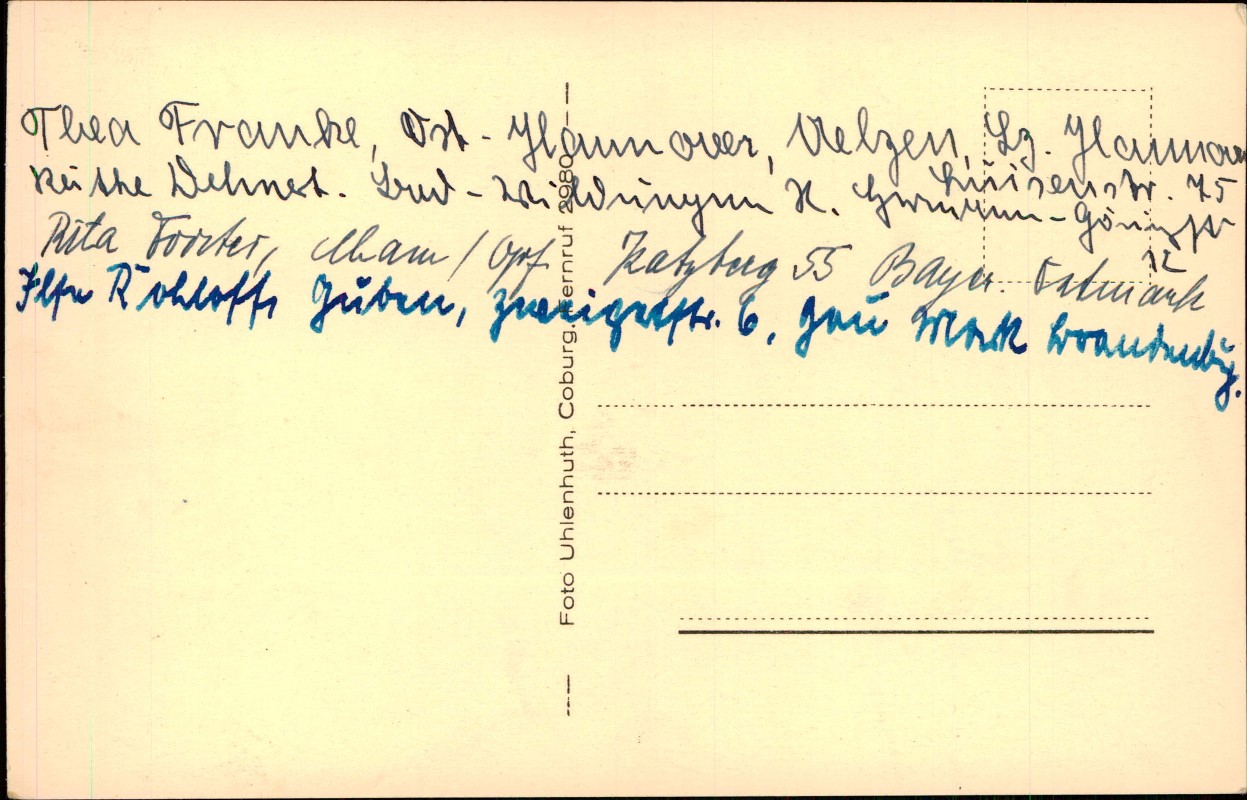 Thea Franke, Ost-Hannover, Uelzen, Lz. Hannover
Luisenstr. 75
Käthe Dehnert. Bad-Wildungen H. Hermann-Göringstr
12
Rita Forster, Cham / Opf. Katzberg 55 Bayer. Ostmark
Ilse Rohloff, Guben, Zweigertstr. 6, Gau Mark Brandenburg.
Foto Uhlenhuth, Coburg. Fernruf 2980